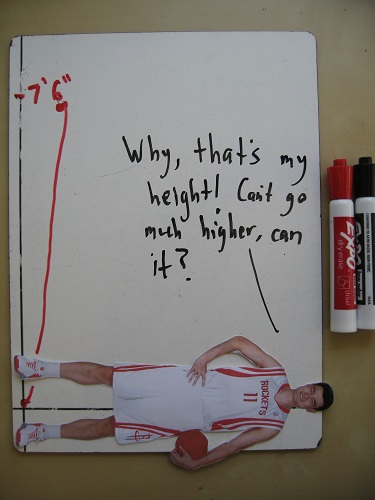 7'6"
Why, that's my
height! Can't go
much higher, can
it?
ROCKETS
11
EXPO
dry erase
EXPO